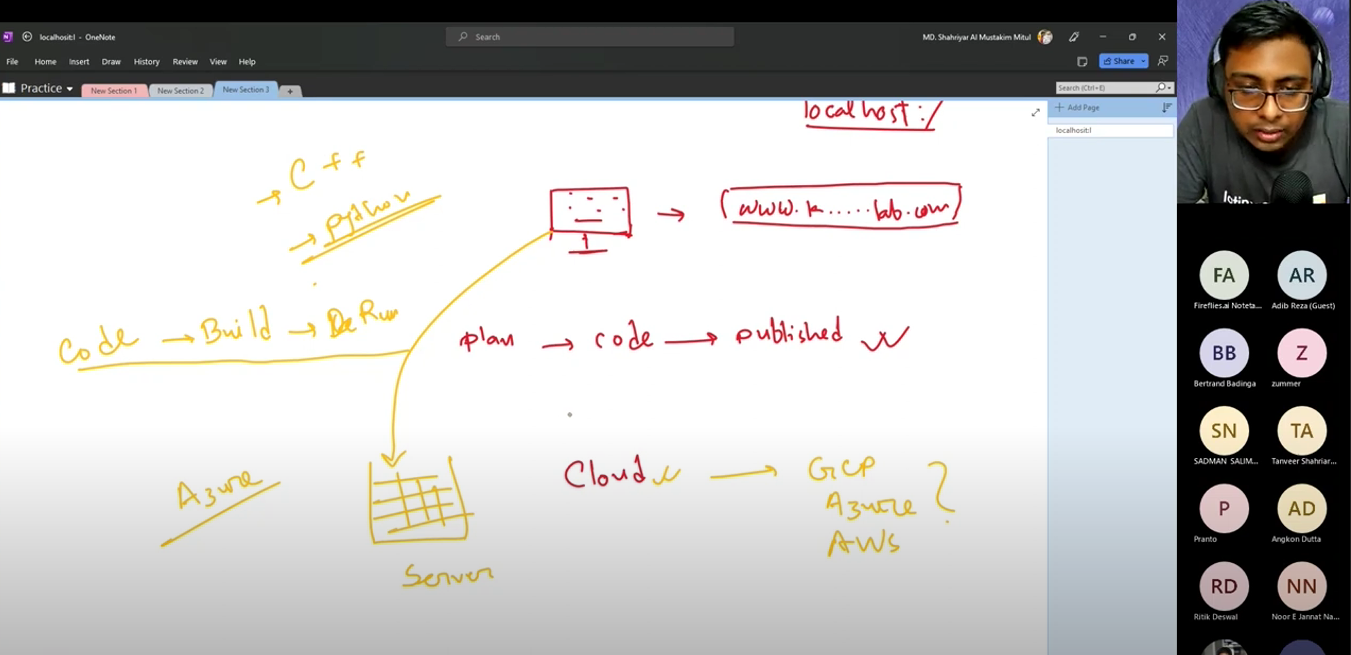 localhosit:l - OneNote
Search
MD. Shahriyar Al Mustakim Mitul
File Home Insert Draw History Review View Help
Share
Practice
New Section 1 New Section 2 New Section 3 +
Search (Ctrl+E)
+ Add Page
localhosit:l
localhost:/
→ C++
→ Python
→ (www.k.....lab.com)
Code → Build → De Run
plan → code → published
Azure
Server
Cloud → GCP
Azure ?
AWS
FA AR
Fireflies.ai Noteta... Adib Reza (Guest)
BB Z
Bertrand Badinga zummer
SN TA
SADMAN SALIM... Tanveer Shahriar...
P AD
Pranto Angkon Dutta
RD NN
Ritik Deswal Noor E Jannat Na...